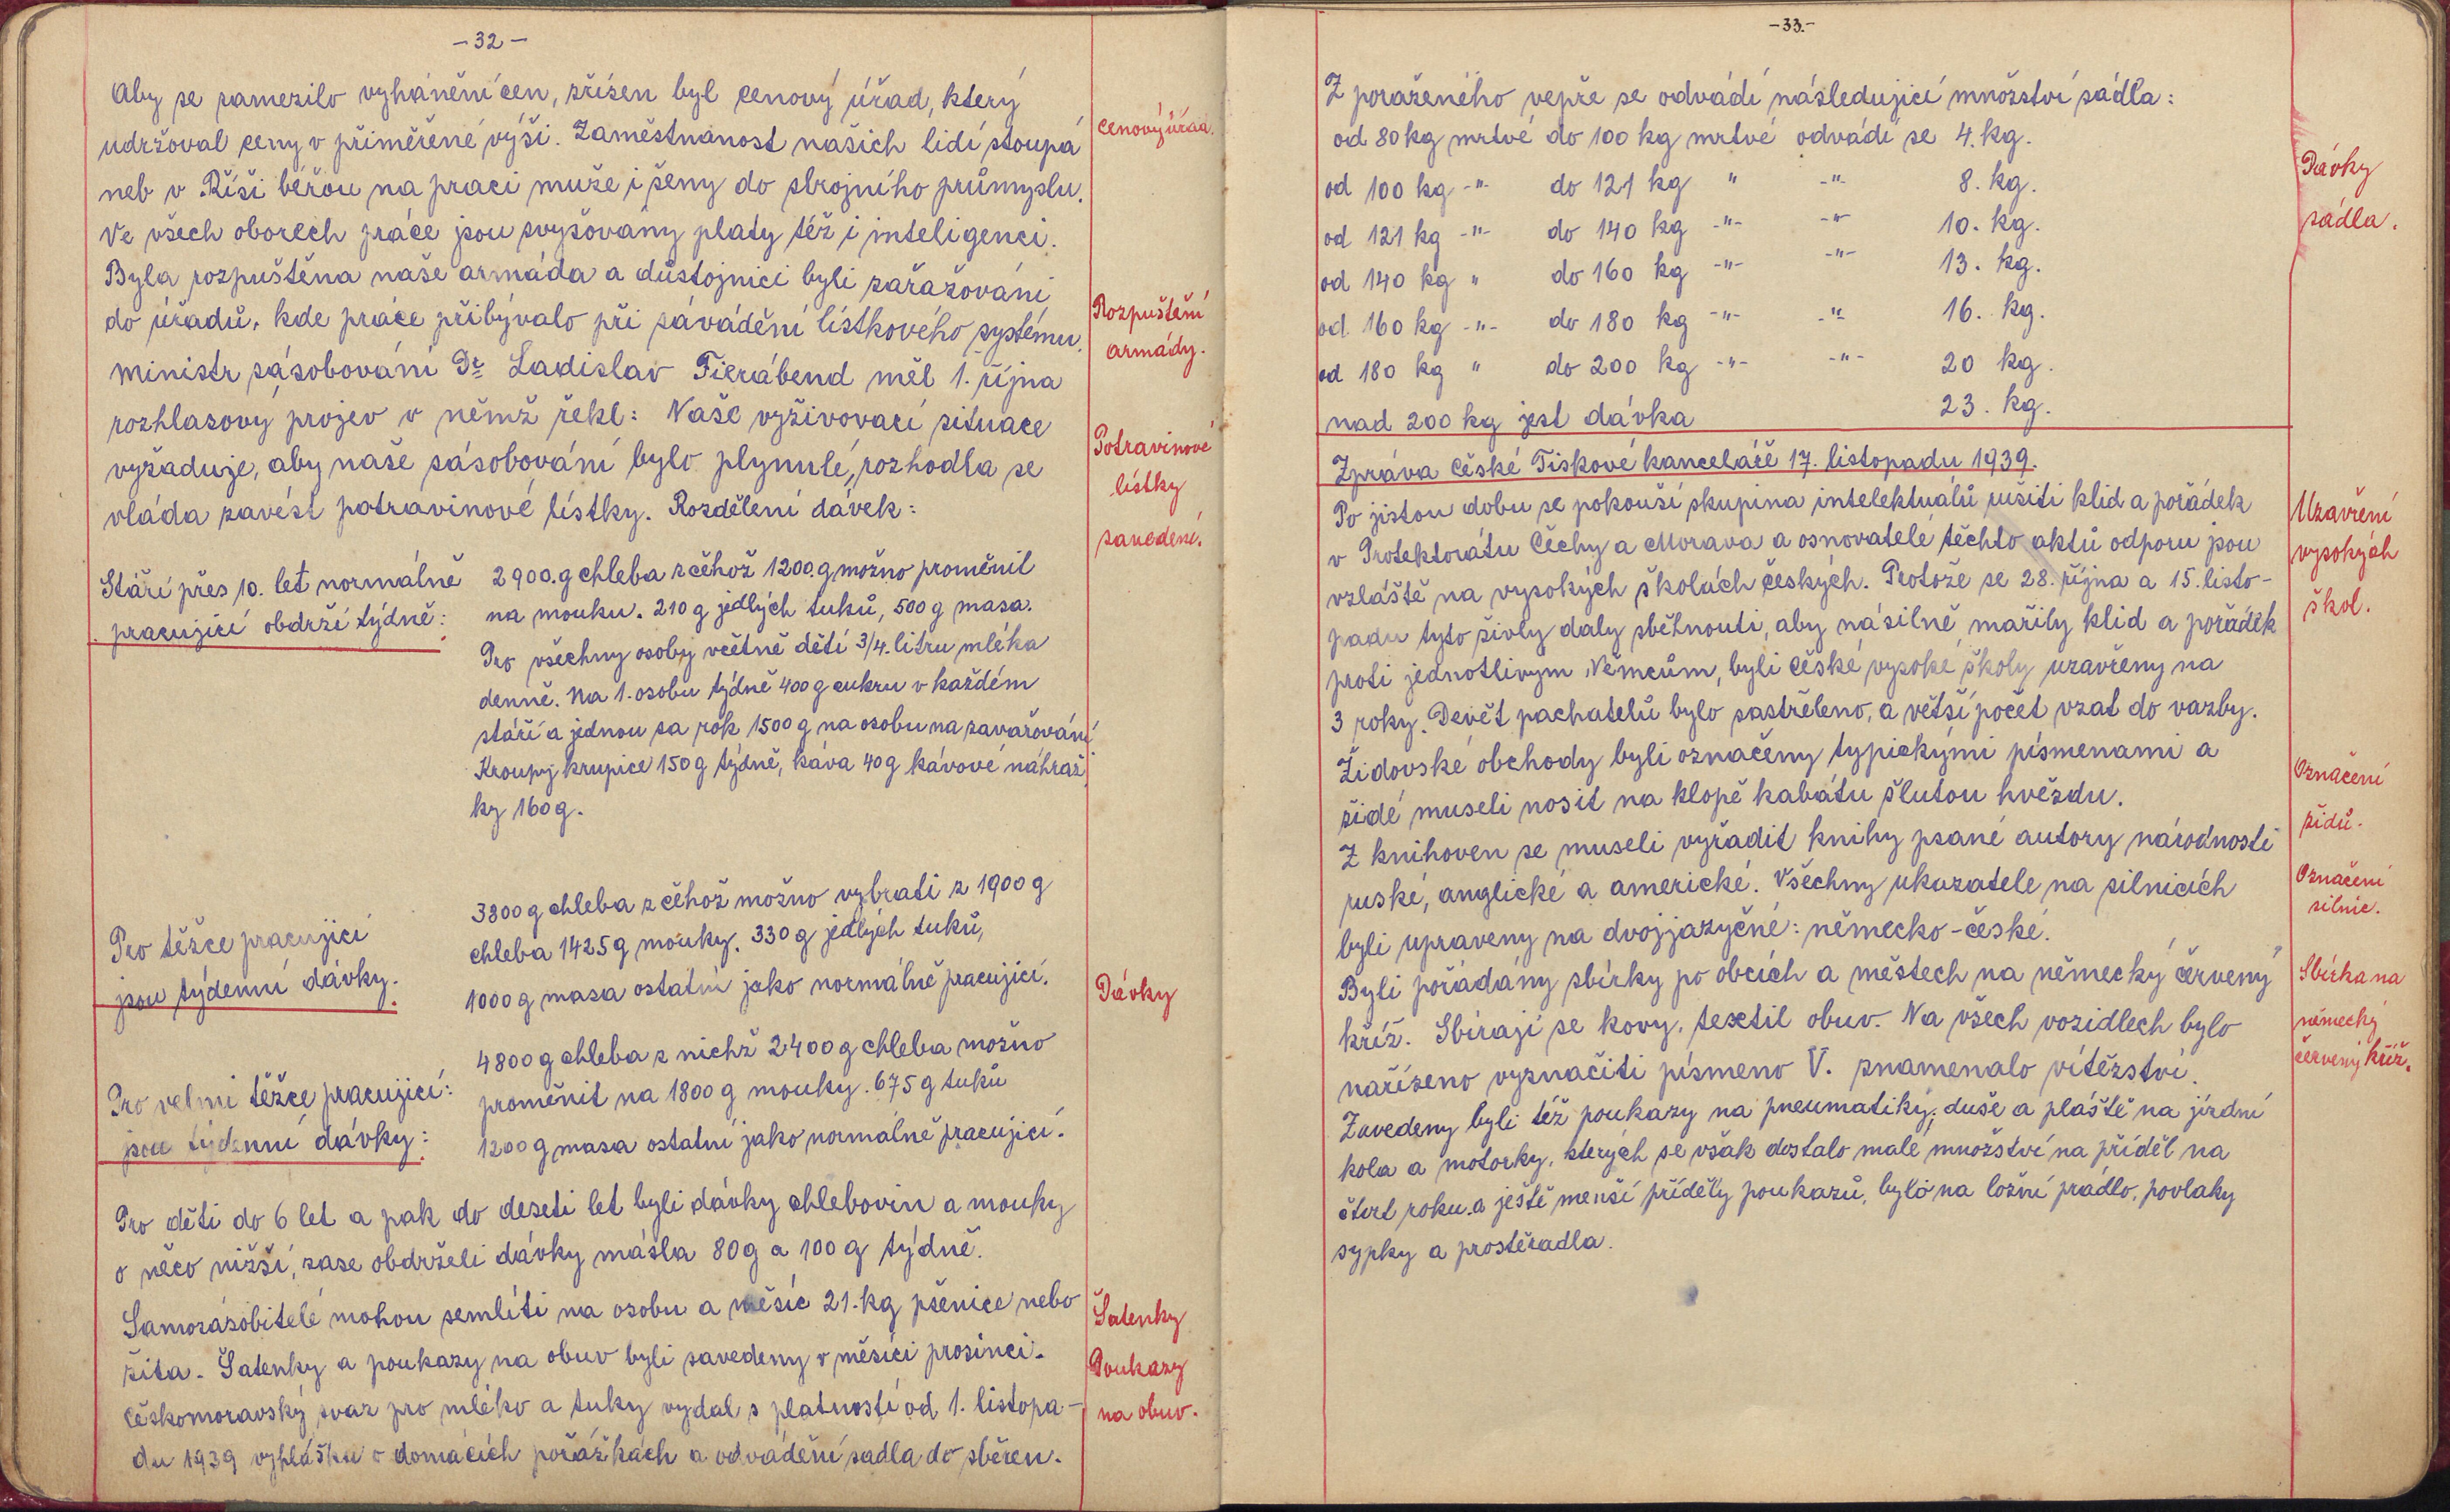 -32-
Aby se zamezilo vyhánění cen, zřízen byl cenový úřad, který
udržoval ceny v přiměřené výši. Zaměstnanost našich lidí stoupá
neb v Říši béřou na praci muže i ženy do zbrojního průmyslu.
Ve všech oborech práce jsou zvyšovány platy též i inteligenci.
Byla rozpuštěna naše armáda a důstojnici byli zařazování
do úřadů, kde práce přibývalo při závádění lístkového systému.
ministr zásobování Dr Ladislav Fierábend měl 1. října
rozhlasový projev v němž řekl: Naše vyživovací situace
vyžaduje, aby naše zásobování bylo plynulé, rozhodla se
vláda zavést potravinové lístky. Rozdělení dávek:
cenový úřad.
Rozpuštění
armády.
Potravinové
lístky
zavedení.
Stáří přes 10. let normálně
pracující obdrží týdně:
2900.g chleba z čéhož 1200.g možno proměnit
na mouku. 210 g jedlých tuků, 500 g masa.
Pro všechny osoby včětně dětí 3/4. litru mléka
denně. Na 1. osobu týdně 400 g cukru v každém
stáří a jednou za rok 1500 g na osobu na zavařování
Kroupy krupice 150 g týdně, káva 40 g kávové náhraž
ky 160 g.
Pro těžce pracujicí
jsou týdenní dávky.
3800 g chleba z čéhož možno vybrati z 1900 g
chleba 1425 g mouky. 330 g jedlých tuků,
1000 g masa ostatní jako normálně pracující.
Dávky
Pro velmi těžce pracujicí:
jsou týdenní dávky:
4800 g chleba z nichž 2400 g chleba možno
proměnit na 1800 g mouky. 675 g tuků
1200 g masa ostatní jako normálně pracujicí.
Pro děti do 6 let a pak do deseti let byli dávky chlebovin a mouky
o něco nižší, zase obdrželi dávky másla 80 g a 100 g týdně.
Samozásobitelé mohou semlíti na osobu a měsíc 21. kg pšenice nebo
žita. Šatenky a poukazy na obuv byli zavedeny v měsíci prosinci.
Českomoravský svaz pro mléko a tuky vydal s platností od 1. listopa-
du 1939 vyhlášku o domácích porážkách a odvádění sadla do sběren.
Šatenky
Poukazy
na obuv.
-33.-
Z poraženého vepře se odvádí následující množství sádla:
od 80 kg mrtvé do 100 kg mrtvé odvádí se 4. kg.
od 100 kg -"- do 121 kg " -"- 8. kg.
od 121 kg -"- do 140 kg -"- -"- 10. kg.
od 140 kg " do 160 kg -"- -"- 13. kg.
od 160 kg -"- do 180 kg -"- -"- 16. kg.
od 180 kg " do 200 kg -"- -"- 20 kg.
nad 200 kg jest dávka 23. kg.
Dávky
sádla.
Zpráva České Tiskové kanceláře 17. listopadu 1939.
Po jistou dobu se pokouší skupina intelektuálů rušiti klid a pořádek
v Protektorátu Čechy a Morava a osnovatelé těchto aktů odporu jsou
vzláště na vysokých školách českých. Protože se 28. října a 15. listo-
padu tyto živly daly sběhnouti, aby násilně mařily klid a pořádek
proti jednotlivym Němcům, byli České vysoké školy uzavřeny na
3 roky. Devět pachatelů bylo zastřeleno, a větší počet vzat do vazby.
Židovské obchody byli označeny typickými písmenami a
židé museli nosit na klopě kabátu žlutou hvězdu.
Z knihoven se museli vyřadit knihy psané autory národnosti
ruské, anglické a americké. Všechny ukazatele na silnicích
byli upraveny na dvojjazyčné: německo-české.
Byli pořádány sbírky po obcích a městech na německý červený
kříž. Sbírají se kovy, textil obuv. Na všech vozidlech bylo
nařízeno vyznačiti písmeno V. znamenalo vítězství.
Zavedeny byli též poukazy na pneumatiky, duše a pláště na jízdní
kola a motorky, kterých se však dostalo malé množství na příděl na
čtvrt roku. a ještě menší příděly poukazů, bylo na ložní prádlo, povlaky
sypky a prostěradla.
Uzavření
vysokých
škol.
Označení
židů.
Označení
silnic.
Sbírka na
německý
červený kříž.